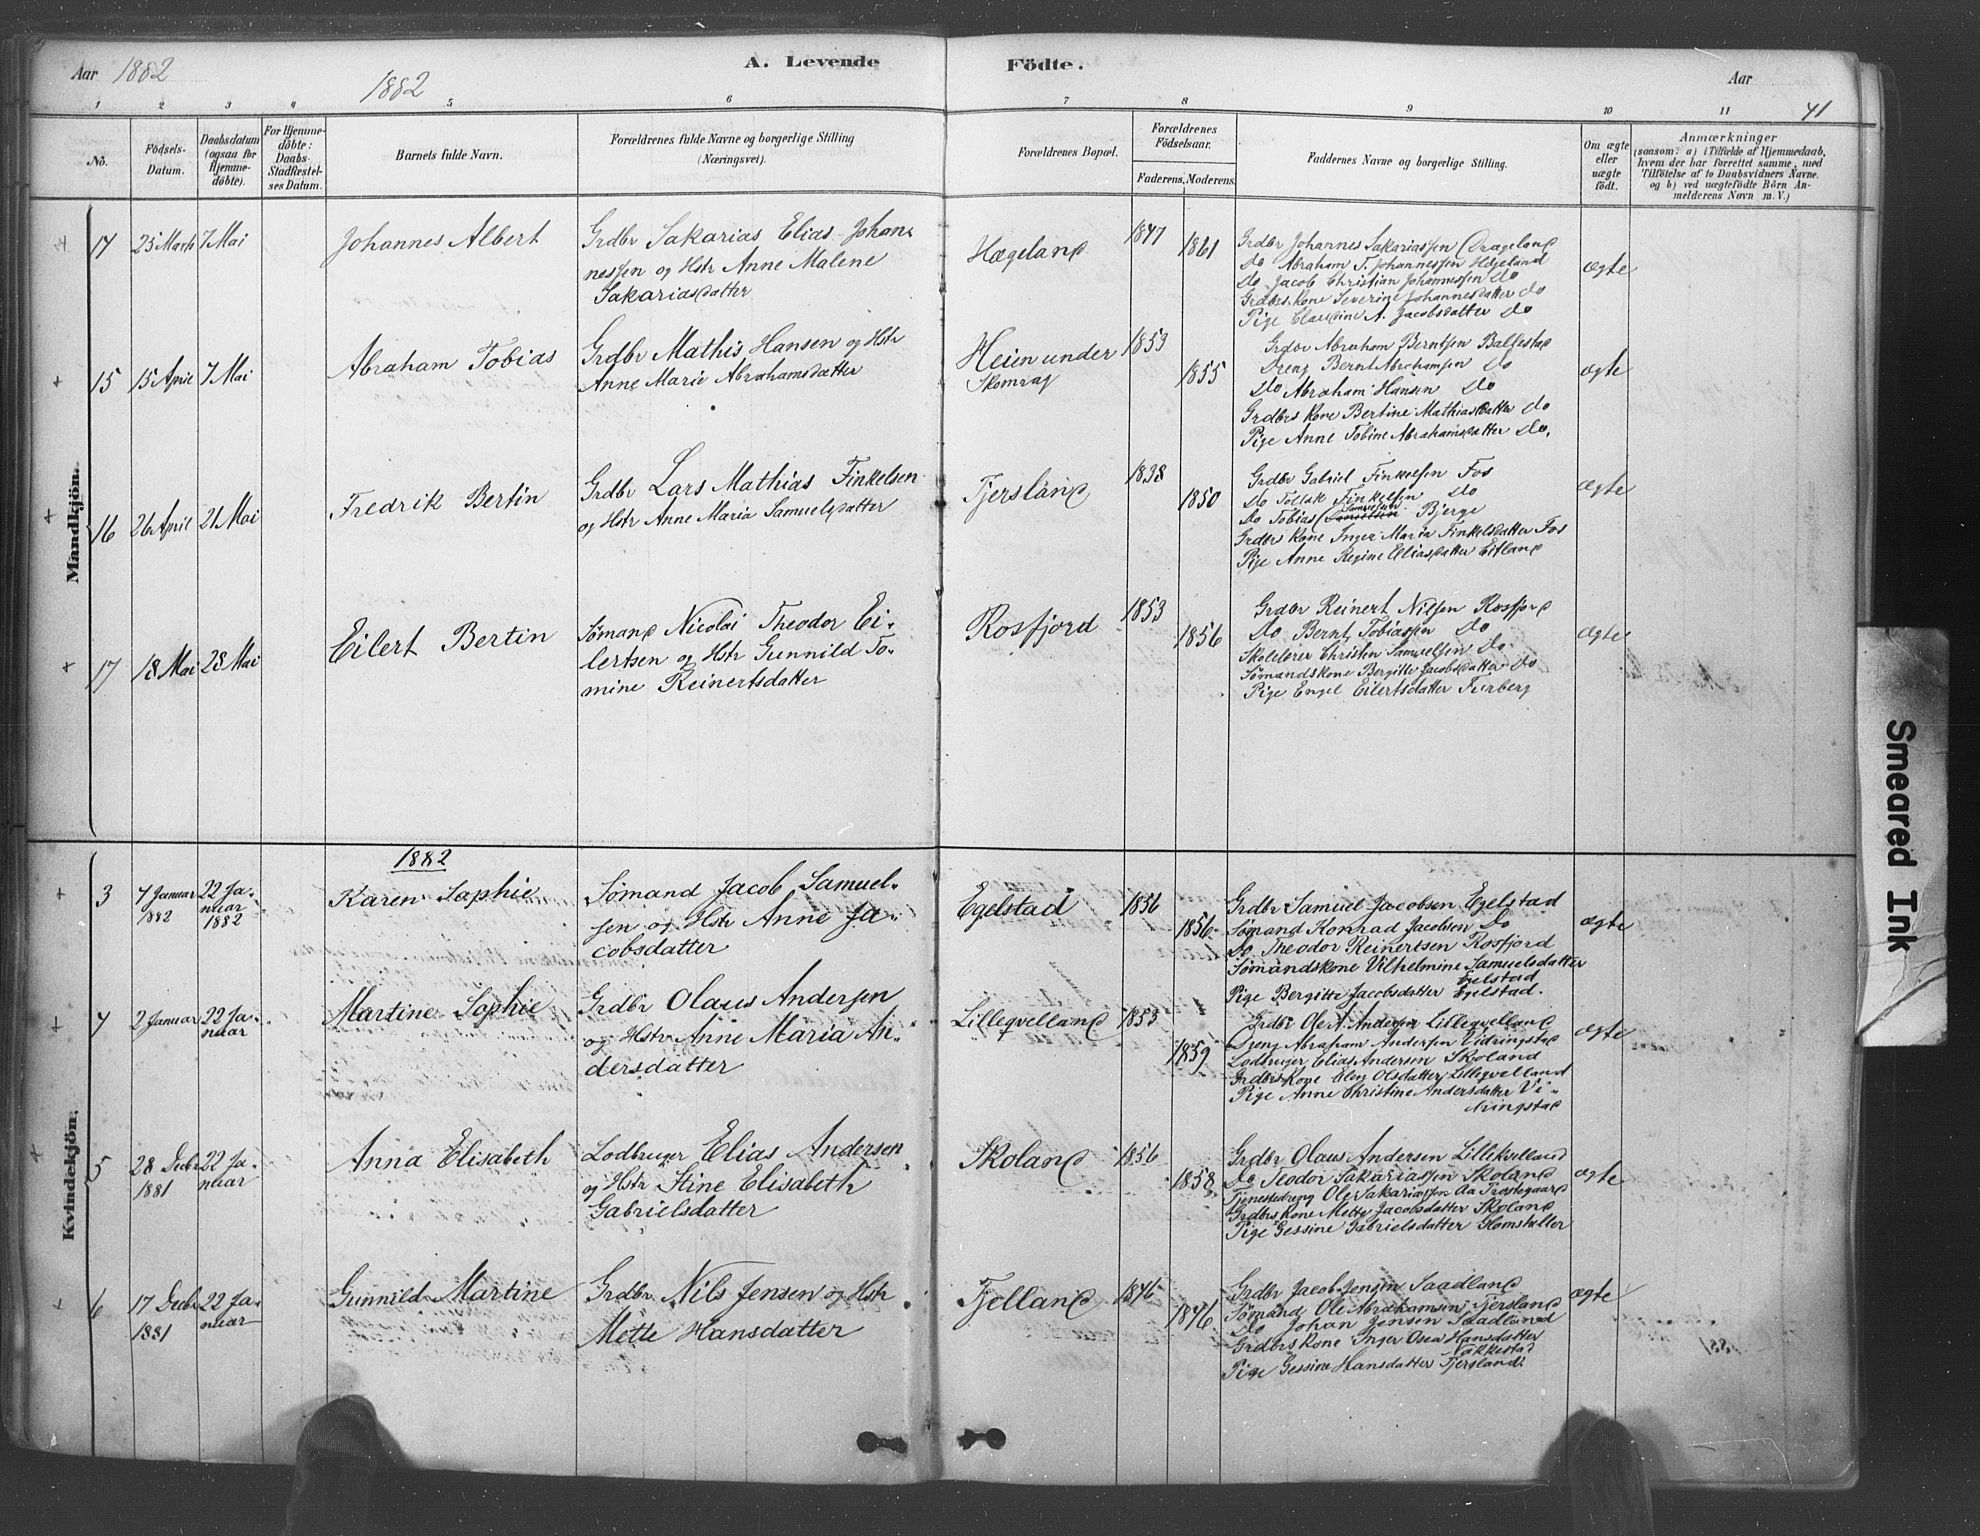 Aar 1882
1882
A. Levende Födte.
Aar
41
1 2 3 4 5 6 7 8 9 10 11
No.
Födsels-
Datum.
Daabsdatum
(ogsaa for
Hjemme-
döbte).
For Hjemme-
döbte:
Daabs-
Stadfæstel-
ses Datum.
Barnets fulde Navn.
Forældrenes fulde Navne og borgerlige Stilling
(Næringsvei).
Forældrenes Bopæl.
Forældrenes
Födselsaar.
Faderens. Moderens.
Faddernes Navne og borgerlige Stilling.
Om ægte
eller
uægte
födt.
Anmærkninger
(saasom: a) i Tilfælde af Hjemmedaab,
hvem der har forrettet samme, med
Tilföielse af to Daabsvidners Navne.
og b) ved uægtefödte Börn An-
melderens Navn m. V.)
Mandkjön.
14 25 Marts 7 Mai
Johannes Albert
Grdbr Sakarias Elias Johan-
nessen og Hstr Anne Malene
Sakariasdatter
Hægeland
1847
1861
Grdbr Johannes Sakariassen Drageland
Do Abraham T. Johannessen Högeland
Do Jacob Christian Johannessen do
Grdbrs Kone Severine Johannesdatter do
Pige Claudine A. Jacobsdatter do
ægte
15 15 April 7 Mai
Abraham Tobias
Grdbr Mathis Hansen og Hstr
Anne Marie Abrahamsdatter
Heien under
Skomrag
1853
1855
Grdbr Abraham Berntsen Ballestad
Dreng Bernt Abrahamsen Do
Do Abraham Hansen Do
Grdbrs Kone Bertine Mathiasdatter do
Pige Anne Tobine Abrahamsdatter Do.
ægte
16 26 April 21 Mai
Fredrik Bertin
Grdbr Lars Mathias Finkelsen
og Hstr Anne Maria Samuelsdatter
Fjersland
1838
1850
Grdbr Gabriel Finkelsen Fos
Do Tollak Finkelsen Do
Samuelsen
Do Tobias Bjerge
Grdbr Kone Inger Maria Finkelsdatter Fos
Pige Anne Regine Eliasdatter Eitland
ægte
17 18 Mai 28 Mai
Eilert Bertin
Sømand Nicolai Theodor Ei-
lertsen og Hstr Gunnild To-
mine Reinertsdatter
Rosfjord
1853
1856
Grdbr Reinert Nilsen Rosfjord
Do Bernt Tobiassen Do
Skolelærer Christen Samuelsen do
Sømandskone Bergitte Jacobsdatter do
Pige Engel Eilertsdatter Furberg
ægte
Kvindekjön.
1882
3 7 Januar
1882
22 Ja-
nuar
1882
Karen Sophie
Sømand Jacob Samuel-
sen og Hstr Anne Ja-
cobsdatter
Egelstad
1856
1856
Grdbr Samuel Jacobsen Egelstad
Sømand Konrad Jacobsen Do
Do Theodor Reinertsen Rosfjord
Sømandskone Vilhelmine Samuelsdatter
Egelstad
Pige Bergitte Jacobsdatter Egelstad.
ægte
4 2 Januar
22 Ja-
nuar
Martine Sophie
Grdbr Olaus Andersen
og Hstr Anne Maria An-
dersdatter
Lilleqvelland
1853
1859
Grdbr Ole A. Andersen Lilleqvelland
Dreng Abraham Andersen Vidringstad
Lodbruger Elias Andersen Skoland
Grdbrs Kone Elen Olsdatter Lilleqvelland
Pige Anne Christine Andersdatter Vi-
dringstad
ægte
5 28 Decbr
1881
22 Ja-
nuar
Anna Elisabeth
Lodbruger Elias Andersen
og Hstr Stine Elisabeth
Gabrielsdatter
Skoland
1856
1858
Grdbr Olaus Andersen Lillekvelland
Do Teodor Sakariassen Skoland
Tjenestedreng Ole Sakariassen Aa Præstegaard
Grdbrs Kone Mette Jacobsdatter Skoland
Pige Gessine Gabrielsdatter Homstæller
ægte
6 17 Decbr
1881
22 Ja-
nuar
Gunnild Martine
Grdbr Nils Jensen og Hstr
Mette Hansdatter
Fjelland
1846
1846
Grdbr Jacob Jensen Saadland
Sømand Ole Abrahamsen Fjersland
Do Johan Jensen Saadland
Grdbrs Kone Inger Osea Hansdatter
Vakkestad
Pige Gessine Hansdatter Fjersland
ægte
Smeared Ink